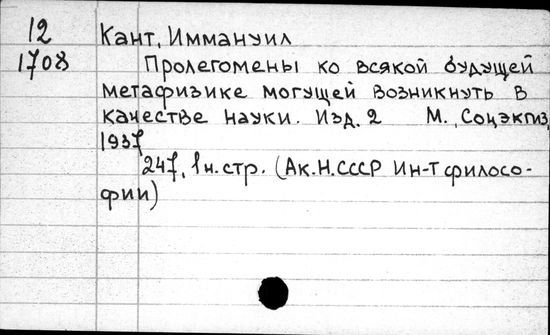 12
1708
Кант, Иммануил
Пролегомены ко всякой будущей
метафизике могущей возникнуть в
качестве науки. Изд. 2 М., Соцэкгиз,
1937
247, 1 н. стр. (Ак. Н. СССР Ин-т филосо-
фии)